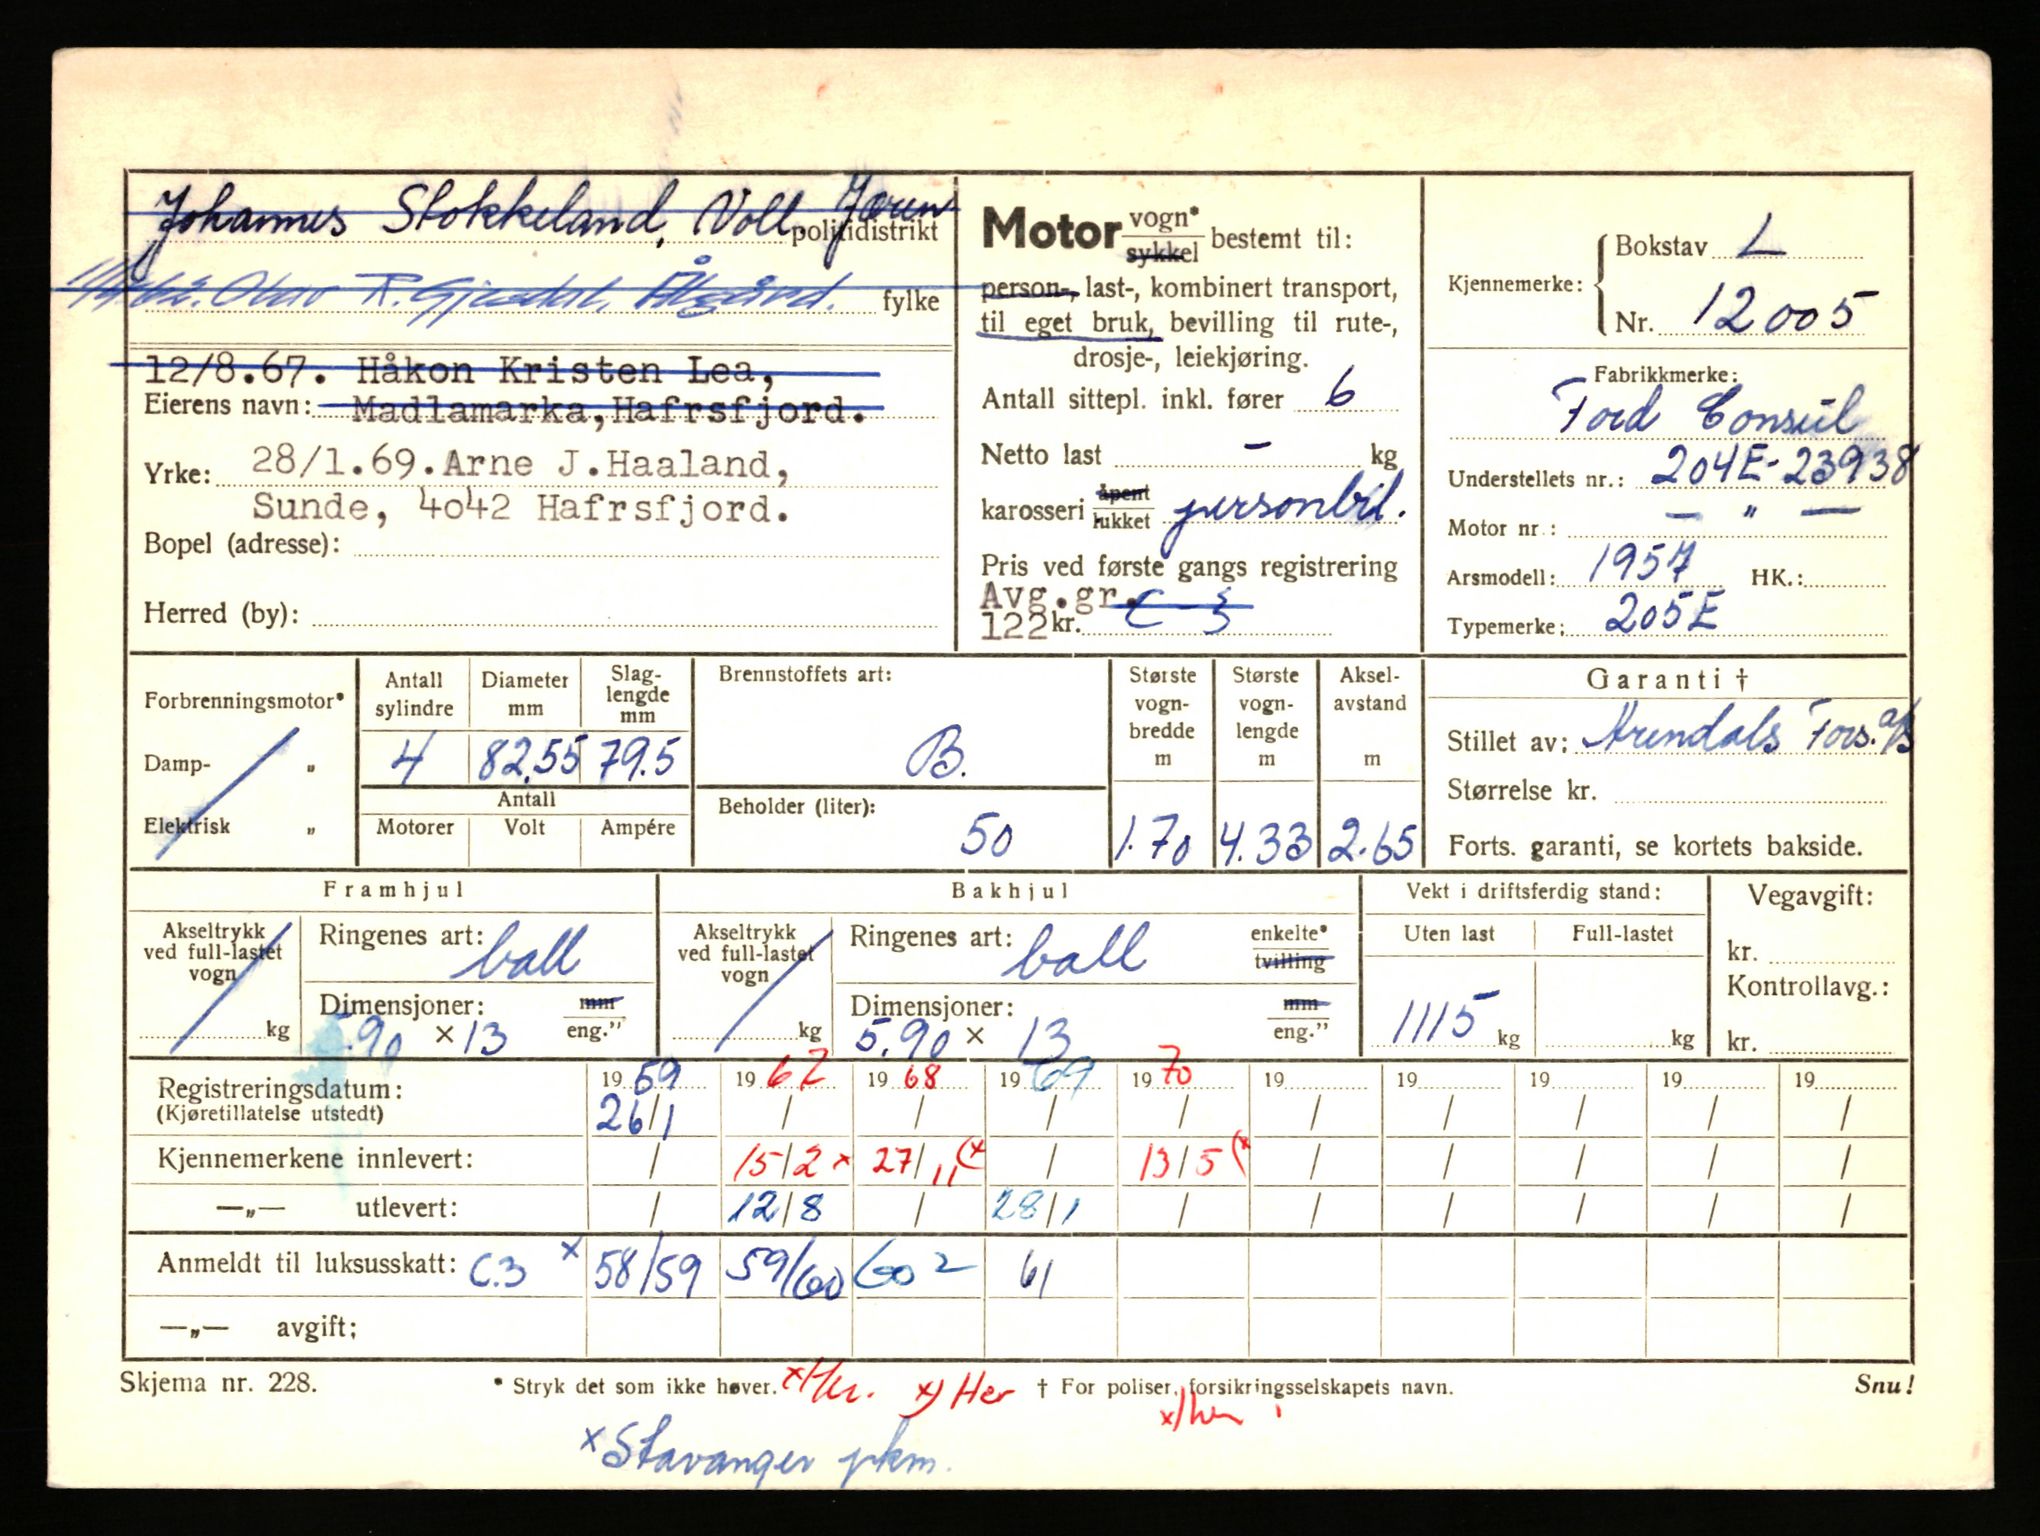 Johannes Stokkeland, Voll, Jæren
politidistrikt
R. Gjesdal, Ålgård.
fylke
12/8.67. Håkon Kristen Lea,
Eierens navn: Madlamarka, Hafrsfjord.
Yrke: 28/1.69. Arne J. Haaland,
Sunde, 4042 Hafrsfjord.
Bopel (adresse):
Herred (by):
Motor vogn* sykkel bestemt til:
person-, last-, kombinert transport,
til eget bruk, bevilling til rute-,
drosje-, leiekjøring.
Antall sittepl. inkl. fører 6
Netto last – kg
karosseri åpent lukket personbil.
Pris ved første gangs registrering
Avg.gr. C 3
122 kr.
Kjennemerke: Bokstav L
Nr. 12005
Fabrikkmerke:
Ford Consul
Understellets nr.: 204E-23938
Motor nr.: — " —
Arsmodell: 1957 HK.:
Typemerke: 205E
Forbrenningsmotor*
Damp- "
Elektrisk "
Antall sylindre
Diameter mm
Slag-lengde mm
4 82,55 79.5
Antall
Motorer Volt Ampére
Brennstoffets art:
B.
Beholder (liter):
50
Største vogn-bredde m
Største vogn-lengde m
Aksel-avstand m
1.70 4.33 2.65
Garanti †
Stillet av: Arendals Fors. a/s
Størrelse kr.
Forts. garanti, se kortets bakside.
Framhjul
Akseltrykk ved full-lastet vogn
kg
Ringenes art: ball
Dimensjoner: mm eng."
5.90 × 13
Bakhjul
Akseltrykk ved full-lastet vogn
kg
Ringenes art: ball enkelte* tvilling
Dimensjoner: mm eng."
5.90 × 13
Vekt i driftsferdig stand:
Uten last Full-lastet
1115 kg kg
Vegavgift:
kr.
Kontrollavg.:
kr.
Registreringsdatum: 1959 1967 1968 1969 1970 19 19 19 19 19
(Kjøretillatelse utstedt) 26/1 / / / / / / / / /
Kjennemerkene innlevert: / 15/2 x 27/11 (x / 13/5 (x / / / / /
—„— utlevert: / 12/8 / 28/1 / / / / / /
Anmeldt til luksusskatt: C.3 x 58/59 59/60 60 2 61
—„— avgift;
Skjema nr. 228. * Stryk det som ikke høver. x) Her. x) Her † For poliser, forsikringsselskapets navn. Snu!
x) her
x Stavanger pkm.